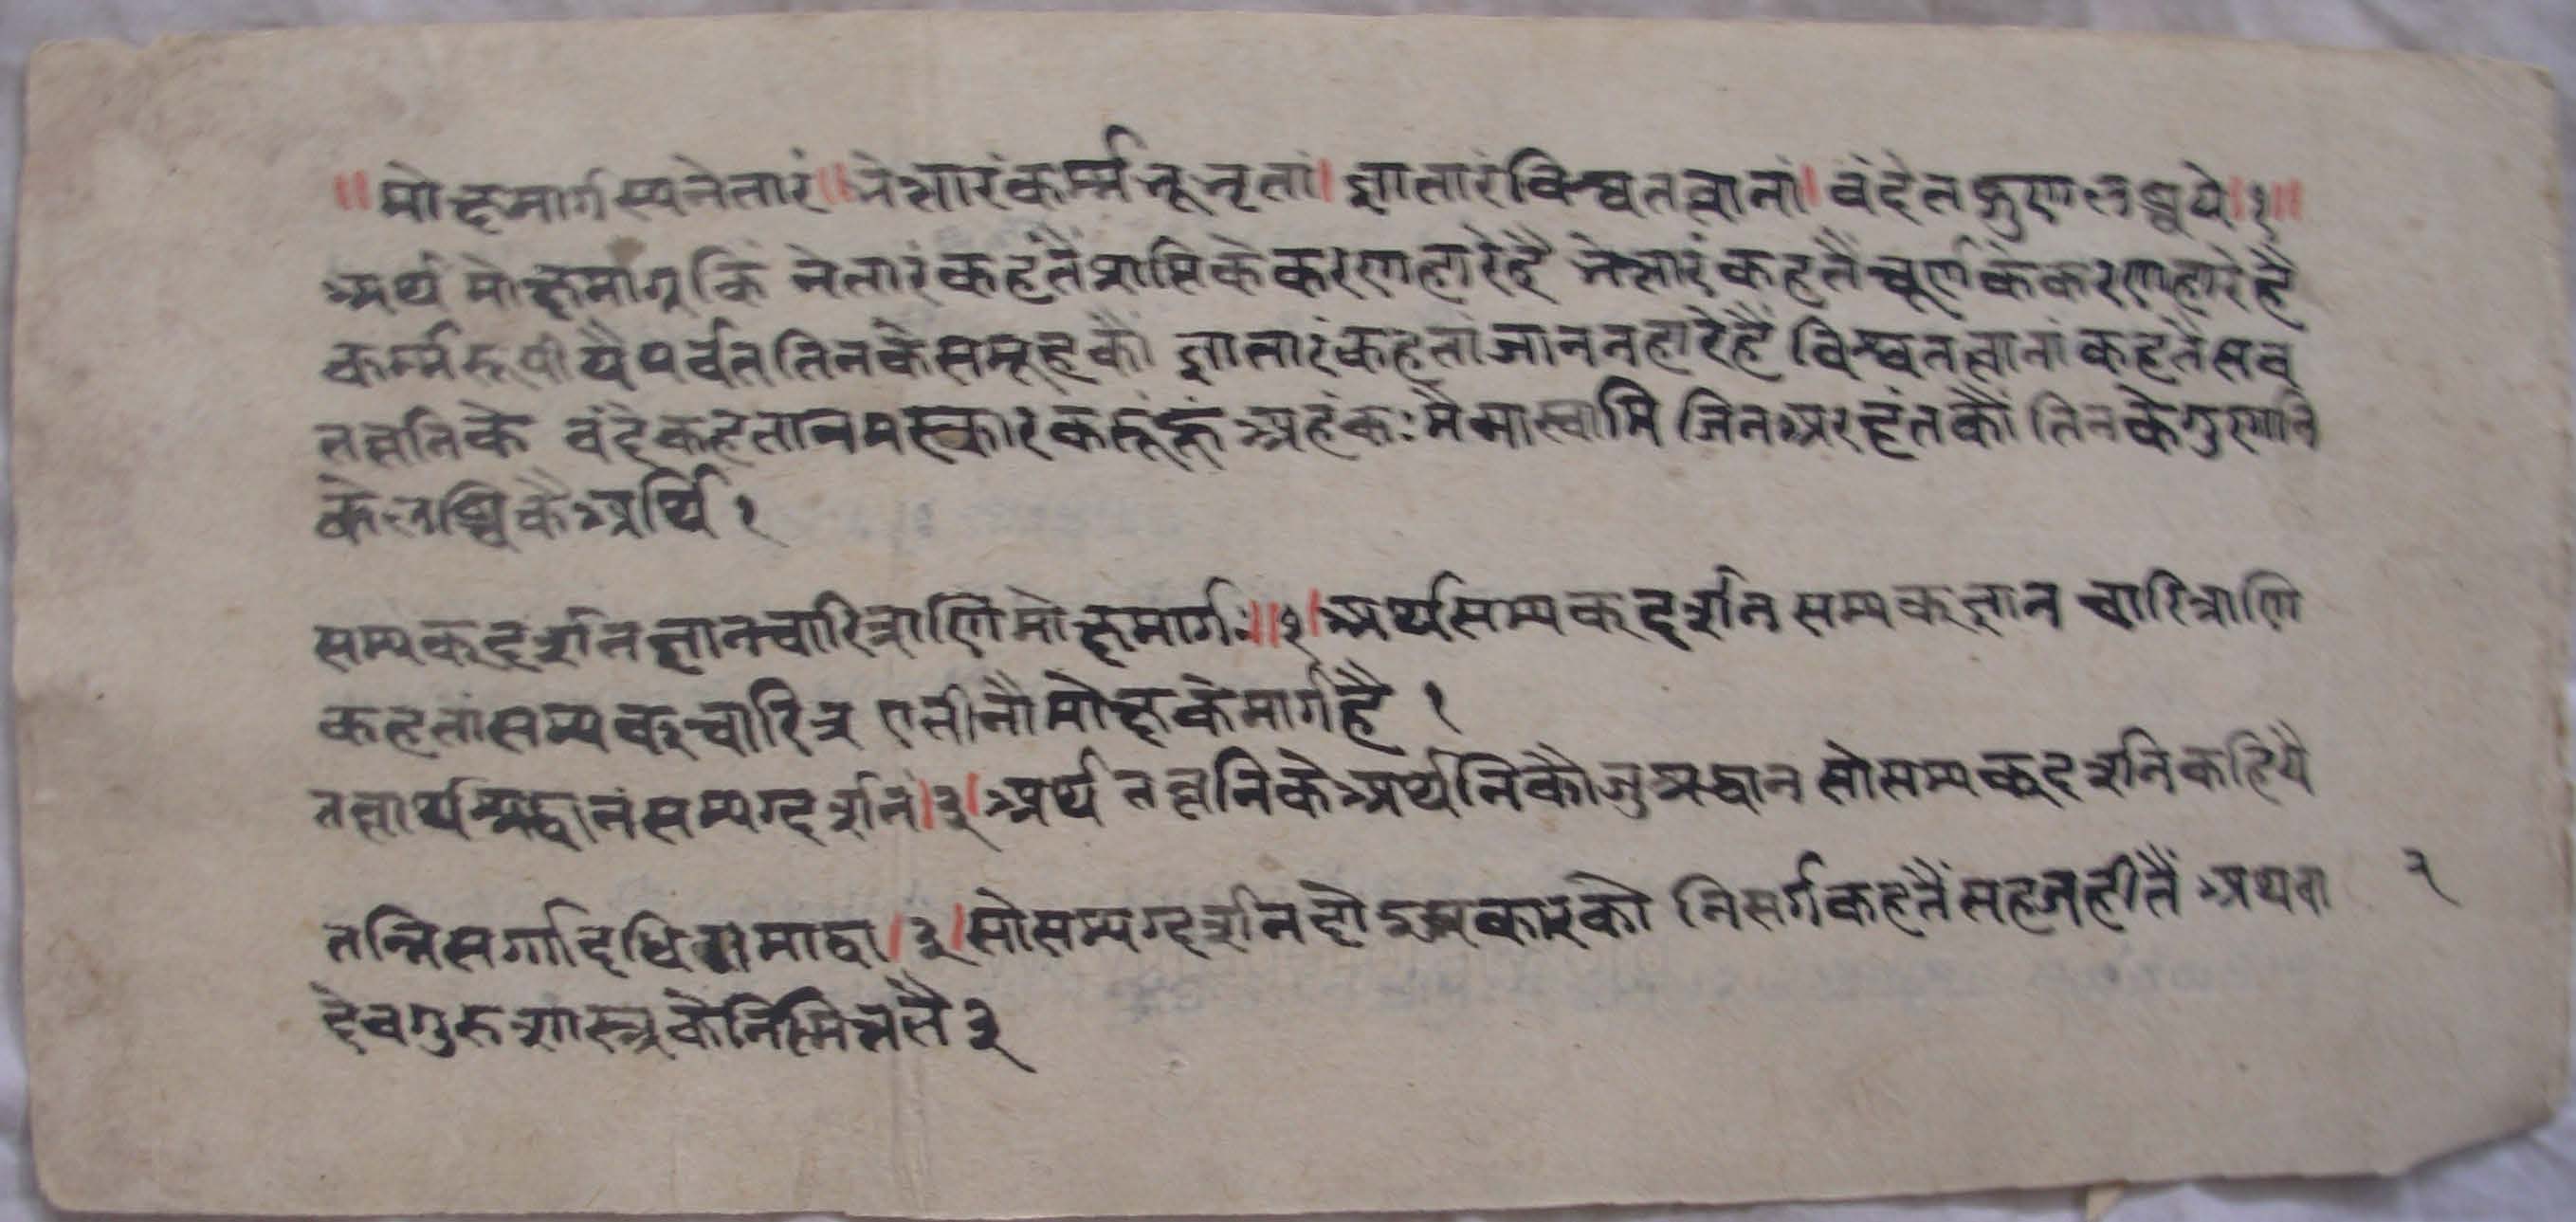 ॥मोक्षमार्गस्यनेतारं॥भेत्तारंकर्म्मभूभृतां।ज्ञातारंविश्वतत्वानां।वंदेतद्गुणलब्धये।१॥
अर्थ मोक्षमार्गकिं नेतारंकहतैंप्राप्तिकेकरणहारेहै भेत्तारंकहतैंचूर्णकेकरणहारेहै
कर्म्मरूपीयैपर्वततिनकेसमूहकौं ज्ञातारंकहतांजाननहारेहैं विश्वतत्वानांकहतैसव
तत्वनिके वंदेकहतानमस्कारकरूंहूं अहंकः मैमास्वामि जिनअरहंतकौं तिनकेगुणनि
केलब्धिकैअर्थि १
सम्यकदर्शनज्ञानचारित्राणिमोक्षमार्गः॥१।अर्थसम्यकदर्शन सम्यकज्ञान चारित्राणि
कहतांसम्यकचारित्र एतीनौमोक्षकेमार्गहै १
तत्वार्थश्रद्धानंसम्यग्दर्शनं।२।अर्थ तत्वनिकेअर्थनिकौजुश्रद्धान सोसम्यकदर्शनकहियै
तन्निसर्गादधिगमाद्वा।३।सोसम्यग्दर्शनदोइप्रकारको निसर्गकहतैंसहजहीतैं अथवा २
देवगुरुशास्त्रकेनिमित्ततै३